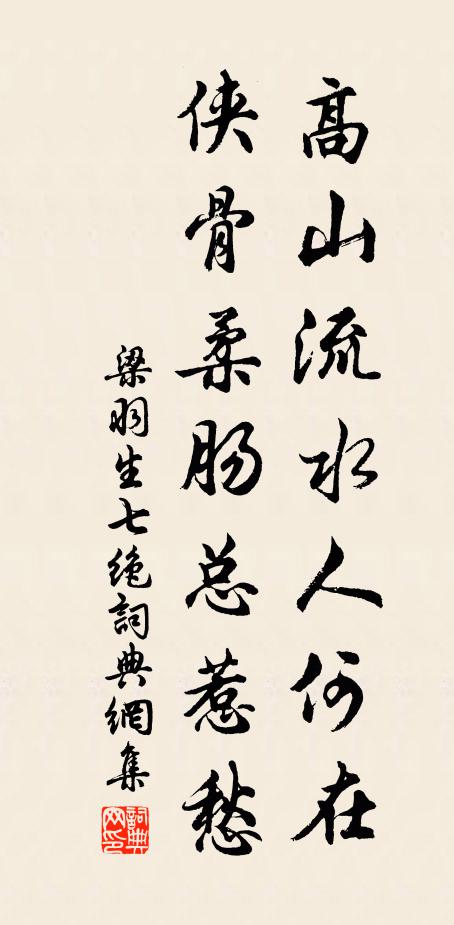 高山流水人何在
侠骨柔肠总惹愁
梁羽生七绝詞典網集
詞典网印